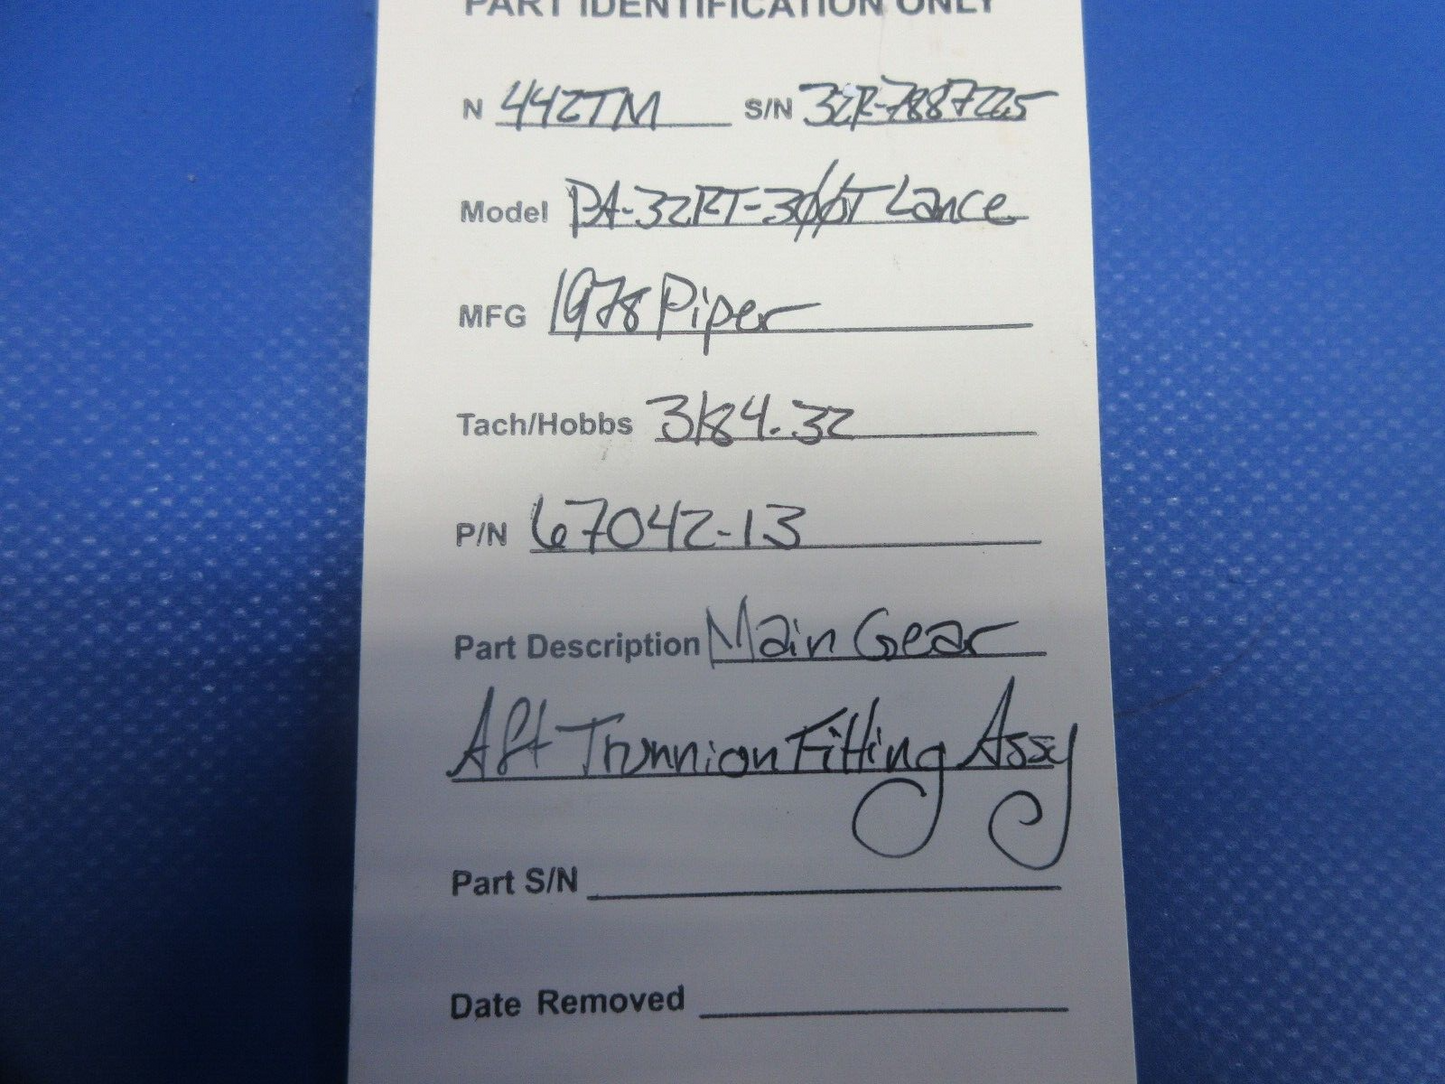 PART IDENTIFICATION ONLY
N 442TM S/N 32R-7887225
Model PA-32RT-300T Lance
MFG 1978 Piper
Tach/Hobbs 3184.32
P/N 67042-13
Part Description Main Gear
Aft Trunnion Fitting Assy
Part S/N
Date Removed